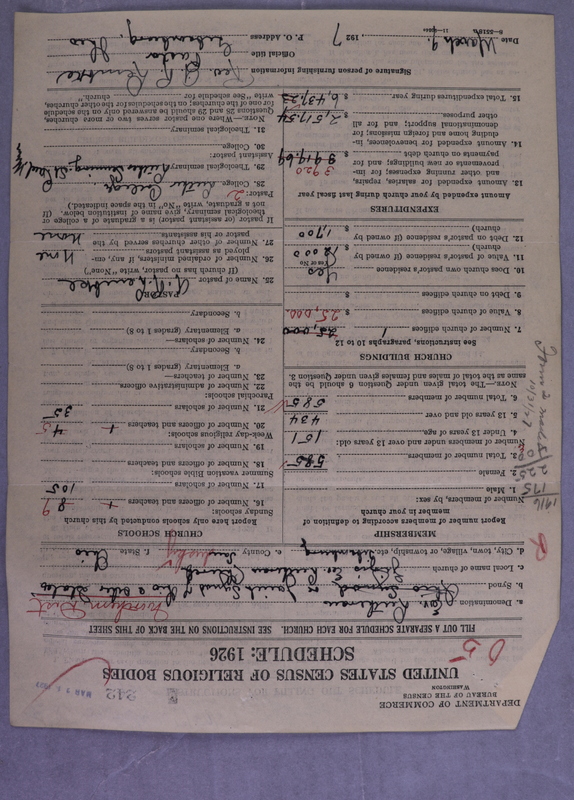 DEPARTMENT OF COMMERCE
BUREAU OF THE CENSUS
WASHINGTON
242
UNITED STATES CENSUS OF RELIGIOUS BODIES
SCHEDULE: 1926
FILL OUT A SEPARATE SCHEDULE FOR EACH CHURCH. SEE INSTRUCTIONS ON THE BACK OF THIS SHEET
a. Denomination Ev. Lutheran
b. Synod Joint Synod of Ohio & other States
c. Local name of church Ev. Lutheran
d. City, town, village, or township, etc. Gibsonburg e. County Sandusky f. State Ohio
MEMBERSHIP
Report number of members according to definition of
member in your church
Number of members, by sex:
1. Male
2. Female
3. Total number of members 585
Number of members under and over 13 years old:
4. Under 13 years of age 151
5. 13 years old and over 434
6. Total number of members 585
NOTE.—The total given under Question 6 should be the
same as the total of males and females given under Question 3.
1916
175
225
CHURCH BUILDINGS
See instructions, paragraphs 10 to 12
7. Number of church edifices 1
8. Value of church edifices $ 25,000
9. Debt on church edifices $
10. Does church own pastor's residence Yes
Yes or No
11. Value of pastor's residence (if owned by
church) $
12. Debt on pastor's residence (if owned by
church) $ 1,700
EXPENDITURES
Amount expended by your church during last fiscal year
13. Amount expended for salaries, repairs,
and other running expenses; for im-
provements or new buildings; and for
payments on church debt $ 3920
14. Amount expended for benevolences, in-
cluding home and foreign missions; for
denominational support; and for all
other purposes. $ 2,517.54
15. Total expenditures during year $ 6,437.23
CHURCH SCHOOLS
Report here only schools conducted by this church
Sunday schools:
16. Number of officers and teachers + 8 9
17. Number of scholars 105
Summer vacation Bible schools:
18. Number of officers and teachers
19. Number of scholars
Week-day religious schools:
20. Number of officers and teachers + 4 5
21. Number of scholars 35
Parochial schools:
22. Number of administrative officers
23. Number of teachers—
a. Elementary (grades 1 to 8)
b. Secondary
24. Number of scholars—
a. Elementary (grades 1 to 8)
b. Secondary
PASTOR
25. Name of pastor
(If church has no pastor, write "None")
26. Number of ordained ministers, if any, em-
ployed as assistant pastors. None
27. Number of other churches served by the
pastor or his assistants. None
If pastor (or assistant pastor) is a graduate of a college or
theological seminary, give name of institution below. (If
not a graduate, write "No" in the space indicated.)
Pastor: 2
28. College Luther College
29. Theological seminary Luther Seminary, St. Paul
Assistant pastor:
30. College
31. Theological seminary
NOTE.—Where one pastor serves two or more churches,
Questions 28 and 29 should be answered only on the schedule
for one of the churches; on the schedules for the other churches,
write "See schedule for church."
Signature of person furnishing information Rev.
Official title Pastor
P. O. Address Gibsonburg, Ohio
Date March 9, 1927